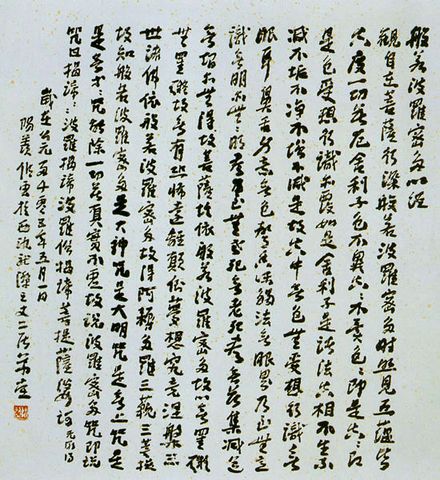 般若波羅密多心經
觀自在菩薩行深般若波羅密多時照見五蘊皆
空度一切苦厄舍利子色不異空空不異色色即是空空即
是色受想行識亦復如是舍利子是諸法空相不生不
滅不垢不净不增不減是故空中無色無受想行識無
眼耳鼻舌身意無色聲香味觸法無眼界乃至無意
識無明亦無無明盡乃至無老死亦無老死盡無苦集滅道
無智亦無得故菩提薩埵依般若波羅密多故心無罣礙
無罣礙故無有恐怖遠離顛倒夢想究竟涅槃三
世諸佛依般若波羅密多故得阿耨多羅三藐三菩提
故知般若波羅密多是大神咒是大明咒是無上咒是
是無等等咒能除一切苦真實不虛故說波羅密多咒即說
咒曰揭諦揭諦波羅揭諦波羅僧揭諦菩提薩婆訶
歲在公元二千零五年五月一日